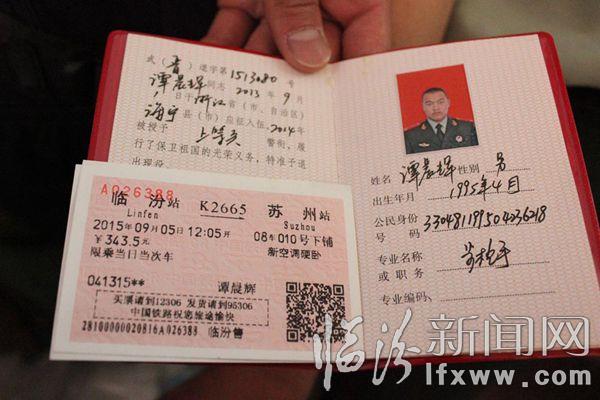 武（晋）退字第1513080号
谭晨辉同志2013年9月
1日于浙江省（市、自治区）
海宁县（市）应征入伍，2014年
被授予上等兵警衔，履
行了保卫祖国的光荣义务，特准予退
出现役。
姓名 谭晨辉 性别 男
出生年月 1995年4月
公民身份
号码
专业名称
或职务
专业编码：
A026388
临汾站 K2665 苏州站
Linfen Suzhou
2015年09月05日12:05开 08车010号下铺
￥343.5元 新空调硬卧
限乘当日当次车
041315** 谭晨辉
买票请到12306 发货请到95306
中国铁路祝您旅途愉快
28100000020816A026388 临汾售
临汾新闻网
lfxww.com